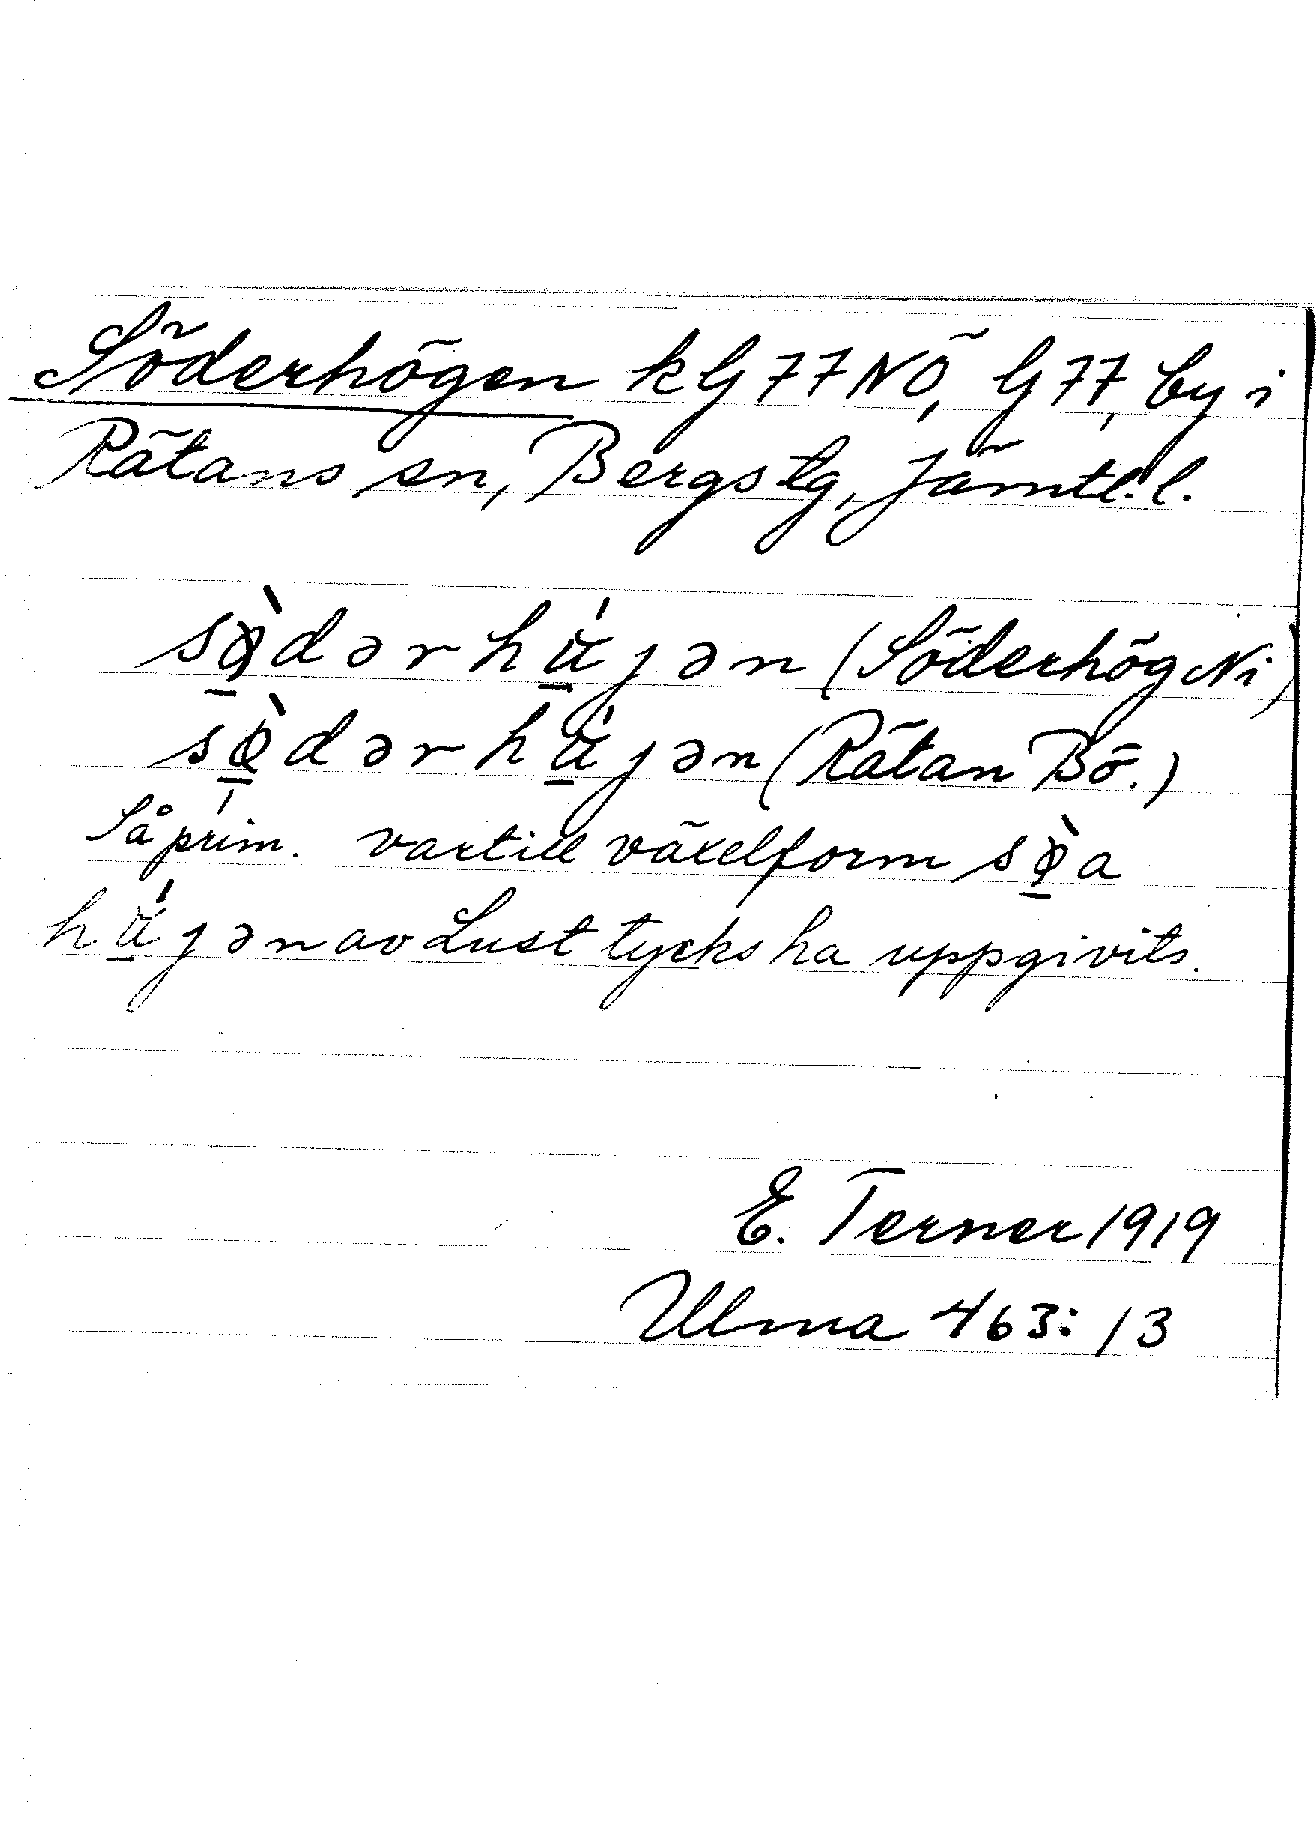 Söderhögen kG77NÖ, G77, by i
Rätans sn, Bergs tg, Jämtl.l.
sø̲̀dərhä̲́jən (Söderhög Ni)
sø̲̀dərhä̲́jən (Rätan Bö.)
Så prim. vartill växelform sø̲̀a
hä̲́jən av Lust tycks ha uppgivits.
E. Terner 1919
Ulma 463:13